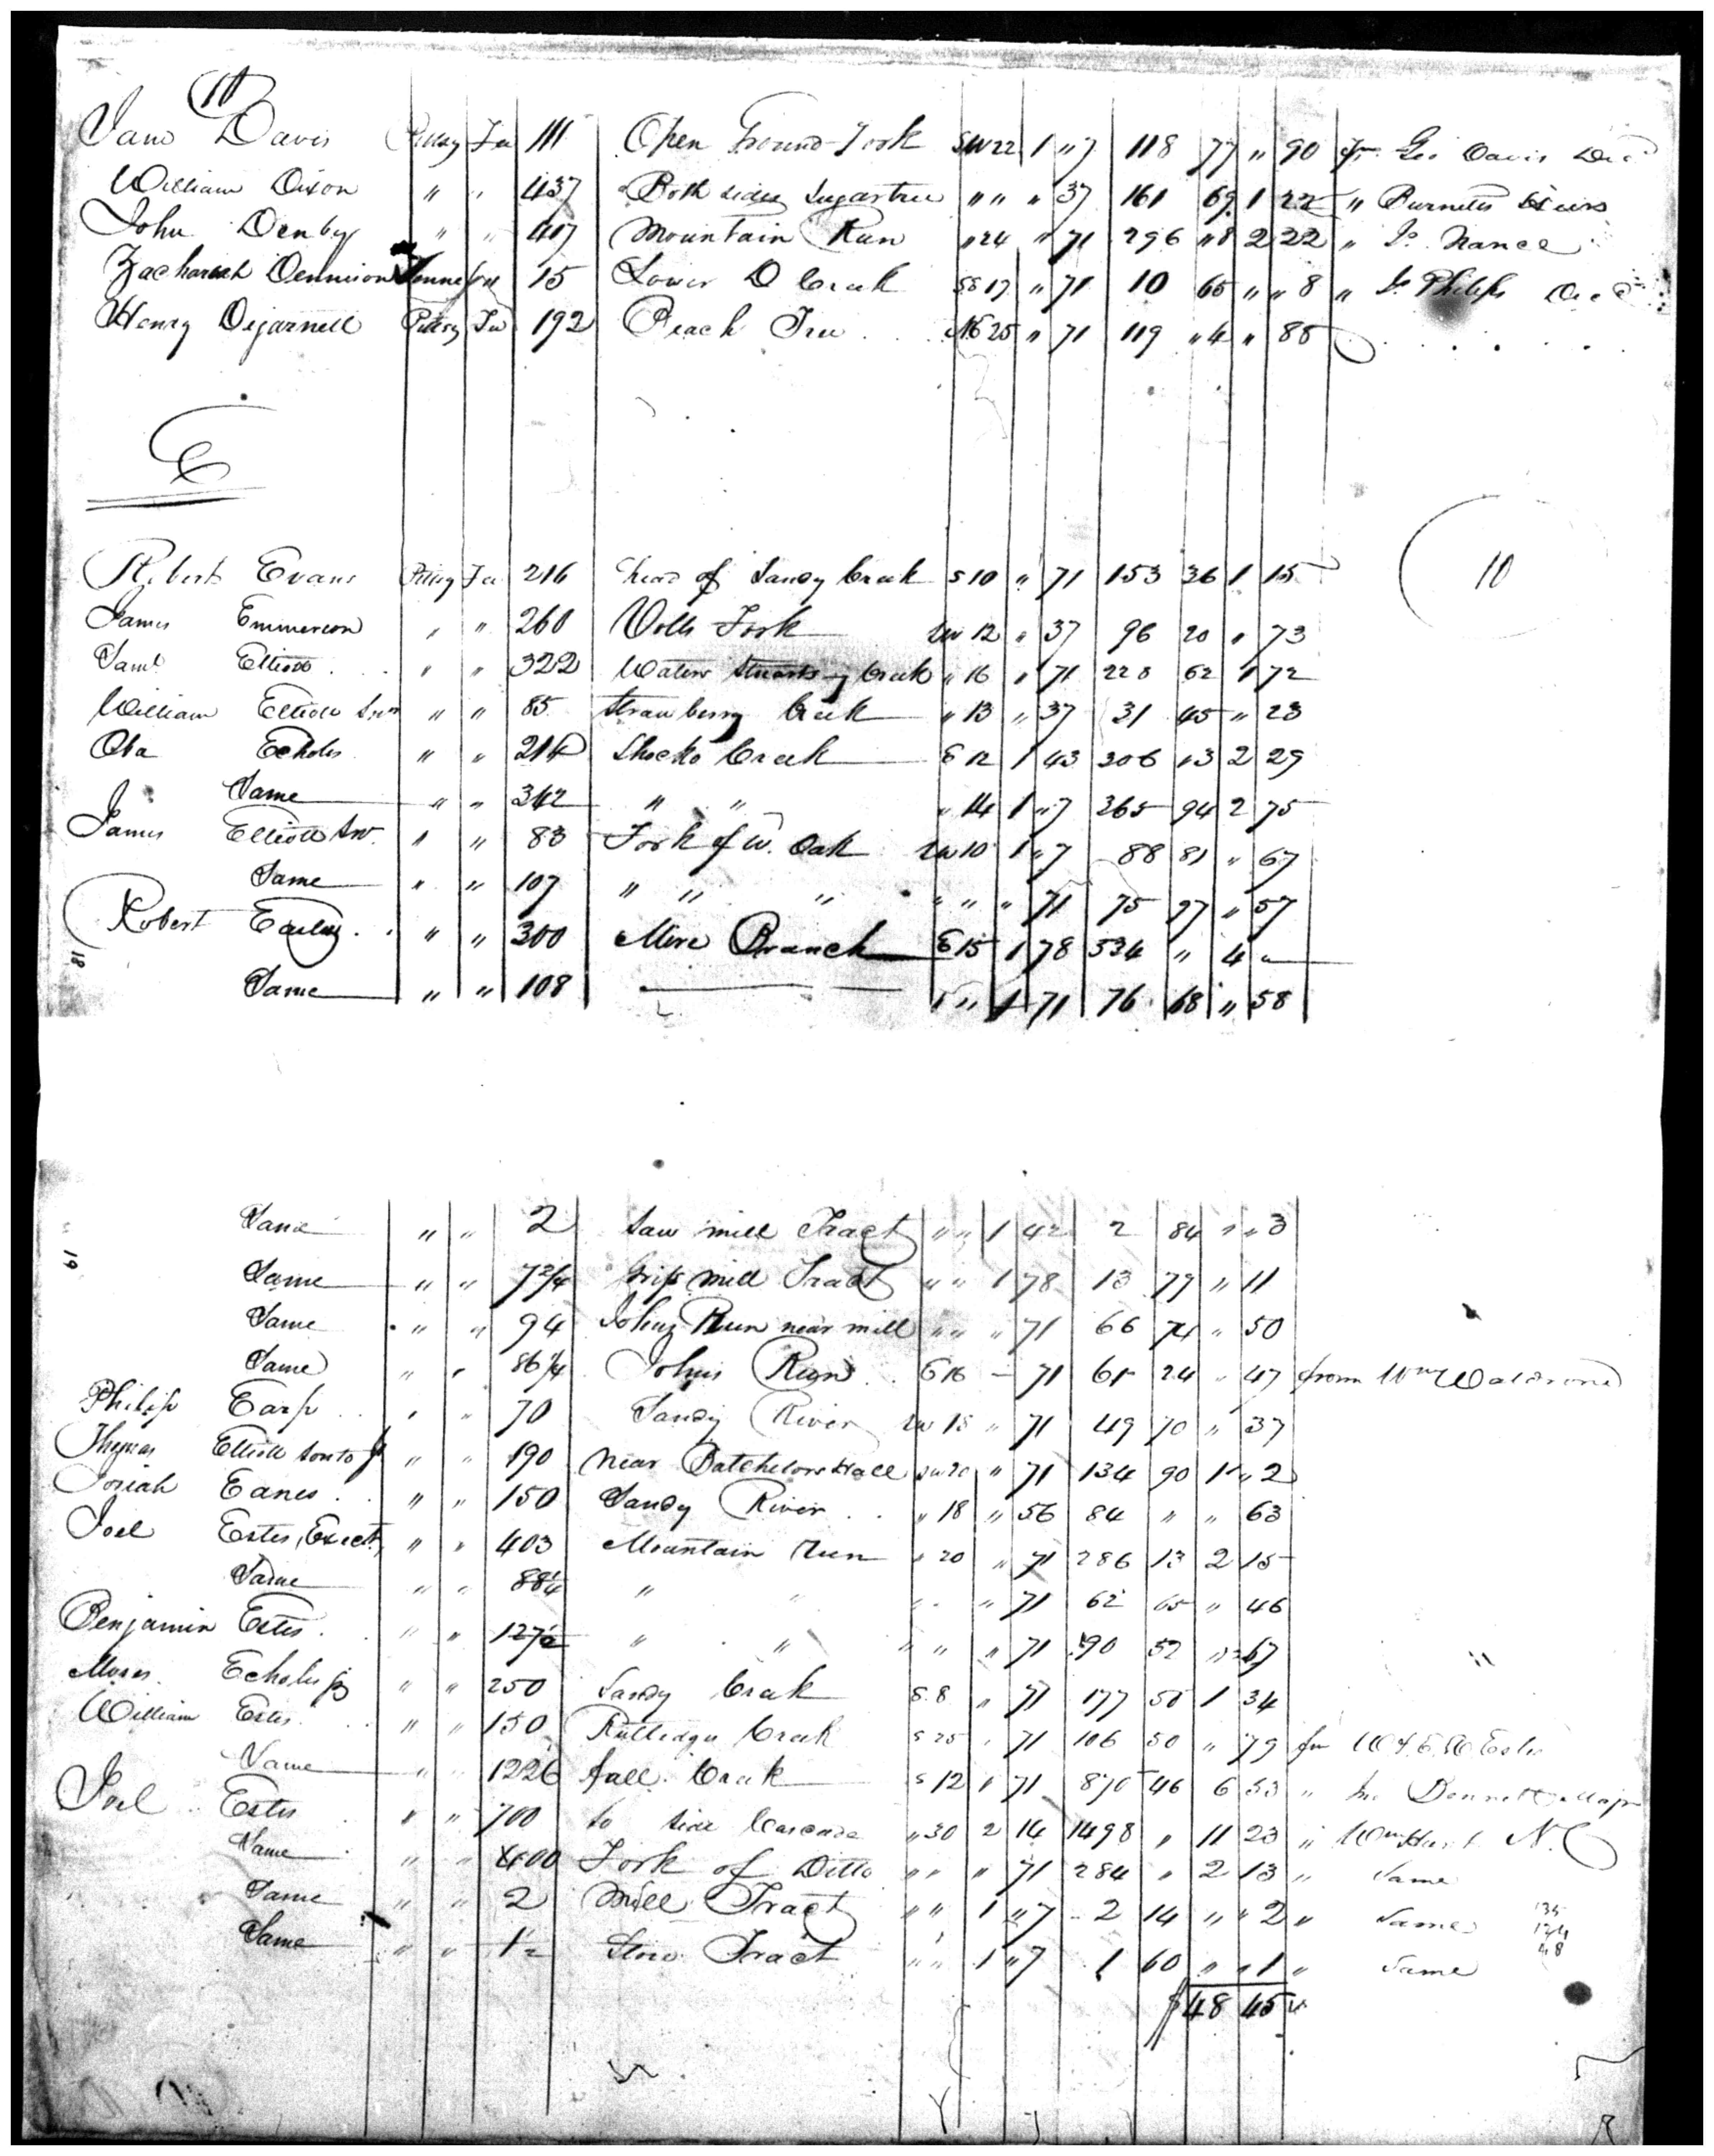 10
Sam Davis Pittsy Fee 111 Open Ground Fork SW 22 1 "7 118 77 " 90 fr. Geo Davis Decd
William Dixon " " 437 Both sides Sugartree " " " 37 161 69 1 22 " Burnetts
John Denby " " 417 Mountain Run " 24 " 71 296 "8 2 22 " Jo. Nance
Zachariah Dennison 15 Lower D Creek SE 17 " 71 10 65 " " 8 " Philips Decd
Henry Dejarnell Pittsy Fee 192 Peach Tree NE 25 " 71 119 "4 " 88
E
Robert Evans Pittsy Fee 216 head of Sandy Creek S 10 " 71 153 36 1 15
10
James Emmerson " " 260 Fork SW 12 " 37 96 20 " 73
Saml Elliott " " 322 Waters Creek " 16 " 71 228 62 1 72
William Elliott Senr " " 85 Strawberry Creek " 13 " 37 31 45 " 23
Oba Echols " " 214 Shocko Creek E 12 1 43 306 "3 2 29
Same " " 342 " " " 14 1 "7 365 94 2 75
James Elliott Sr. " " 83 Fork of W. Oak SW 10 1 "7 88 81 " 67
Same " " 107 " " " " " " 71 75 97 " 57
Robert Early " " 300 Mire Branch E 15 1 78 534 " 4 "
18
Same " " 108 " " 1 71 76 68 " 58
Same " " 2 Saw mill Tract " " 1 42 2 84 " " 3
19
Same " " 7 3/4 Gris mill Tract " " 1 78 13 79 " 11
Same " " 94 Johns Run near mill " " " 71 66 74 " 50
Same " " 86 1/4 Johns Run E 16 - 71 61 24 " 47 from Wm Waldrond
Philip Earp " " 70 Sandy River SW 15 " 71 49 70 " 37
Thomas Elliott son to J " " 190 near Batchelors Hall SW 20 " 71 134 90 1 " 2
Josiah Eanes " " 150 Sandy River " 18 " 56 84 " " 63
Joel Estes, Exect. " " 403 Mountain Run " 20 " 71 286 13 2 15
Same " " 88 1/4 " " " " " 71 62 65 " 46
Benjamin Estes " " 127 1/2 " " " " " 71 90 52 " 67
Moses Echols jr " " 250 Sandy Creek S. 8 " 71 177 50 1 34
William Estes " " 150 Rutledges Creek S 25 " 71 106 50 " 79 fm Estes
Same " " 1226 fall Creek S 12 " 71 870 46 6 53 " Jno Bennett Majr
Joel Estes " " 700 So side Cascade " 30 2 14 1498 " 11 23 " Wm Hurt N.C
Same " " 400 Fork of Ditto " " " 71 284 " 2 13 " Same
Same " " 2 Mill Tract " " 1 "7 2 14 " " 2 " Same
Same " " 1 1/2 Store Tract " " 1 "7 1 60 " " 1 " Same
$ 48 45